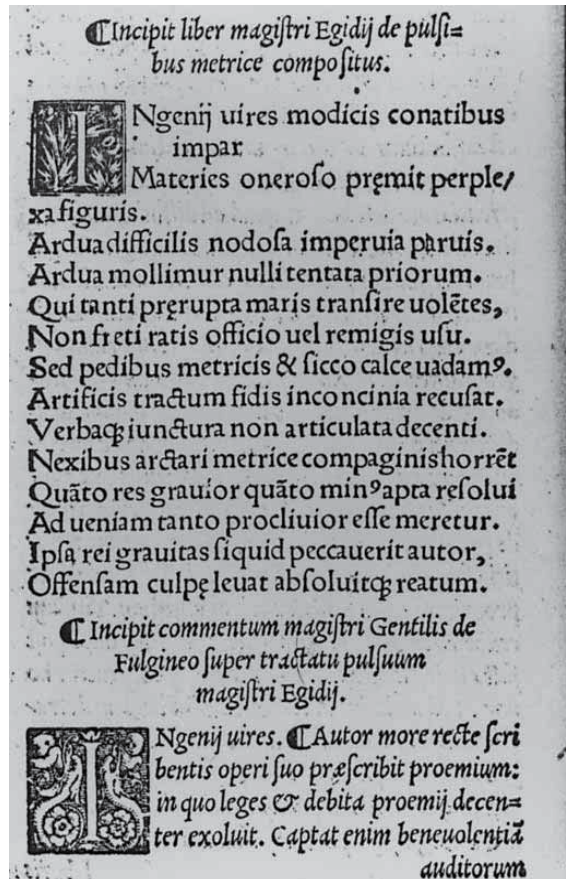 ¶Incipit liber magiſtri Egidij de pulſi=
bus metrice compoſitus.
INgenij uires modicis conatibus
impar
Materies oneroſo pręmit perple/
xa figuris.
Ardua difficilis nodoſa imperuia paruis.
Ardua mollimur nulli tentata priorum.
Qui tanti pręrupta maris tranſire uolẽtes,
Non freti ratis officio uel remigis uſu.
Sed pedibus metricis & ſicco calce uadamꝰ.
Artificis tractum fidis inconcinia recuſat.
Verbaqꝫ iunctura non articulata decenti.
Nexibus arctari metrice compaginis horrẽt
Quãto res grauior quãto minꝰ apta reſolui
Ad ueniam tanto procliuior eſſe meretur.
Ipſa rei grauitas ſiquid peccauerit autor,
Offenſam culpę leuat abſoluitqꝫ reatum.
¶ Incipit commentum magiſtri Gentilis de
Fulgineo ſuper tractatu pulſuum
magiſtri Egidij.
INgenij uires. ¶Autor more recte ſcri
bentis operi ſuo præſcribit proemium:
in quo leges & debita proemij decen=
ter exoluit. Captat enim beneuolentiã
auditorum